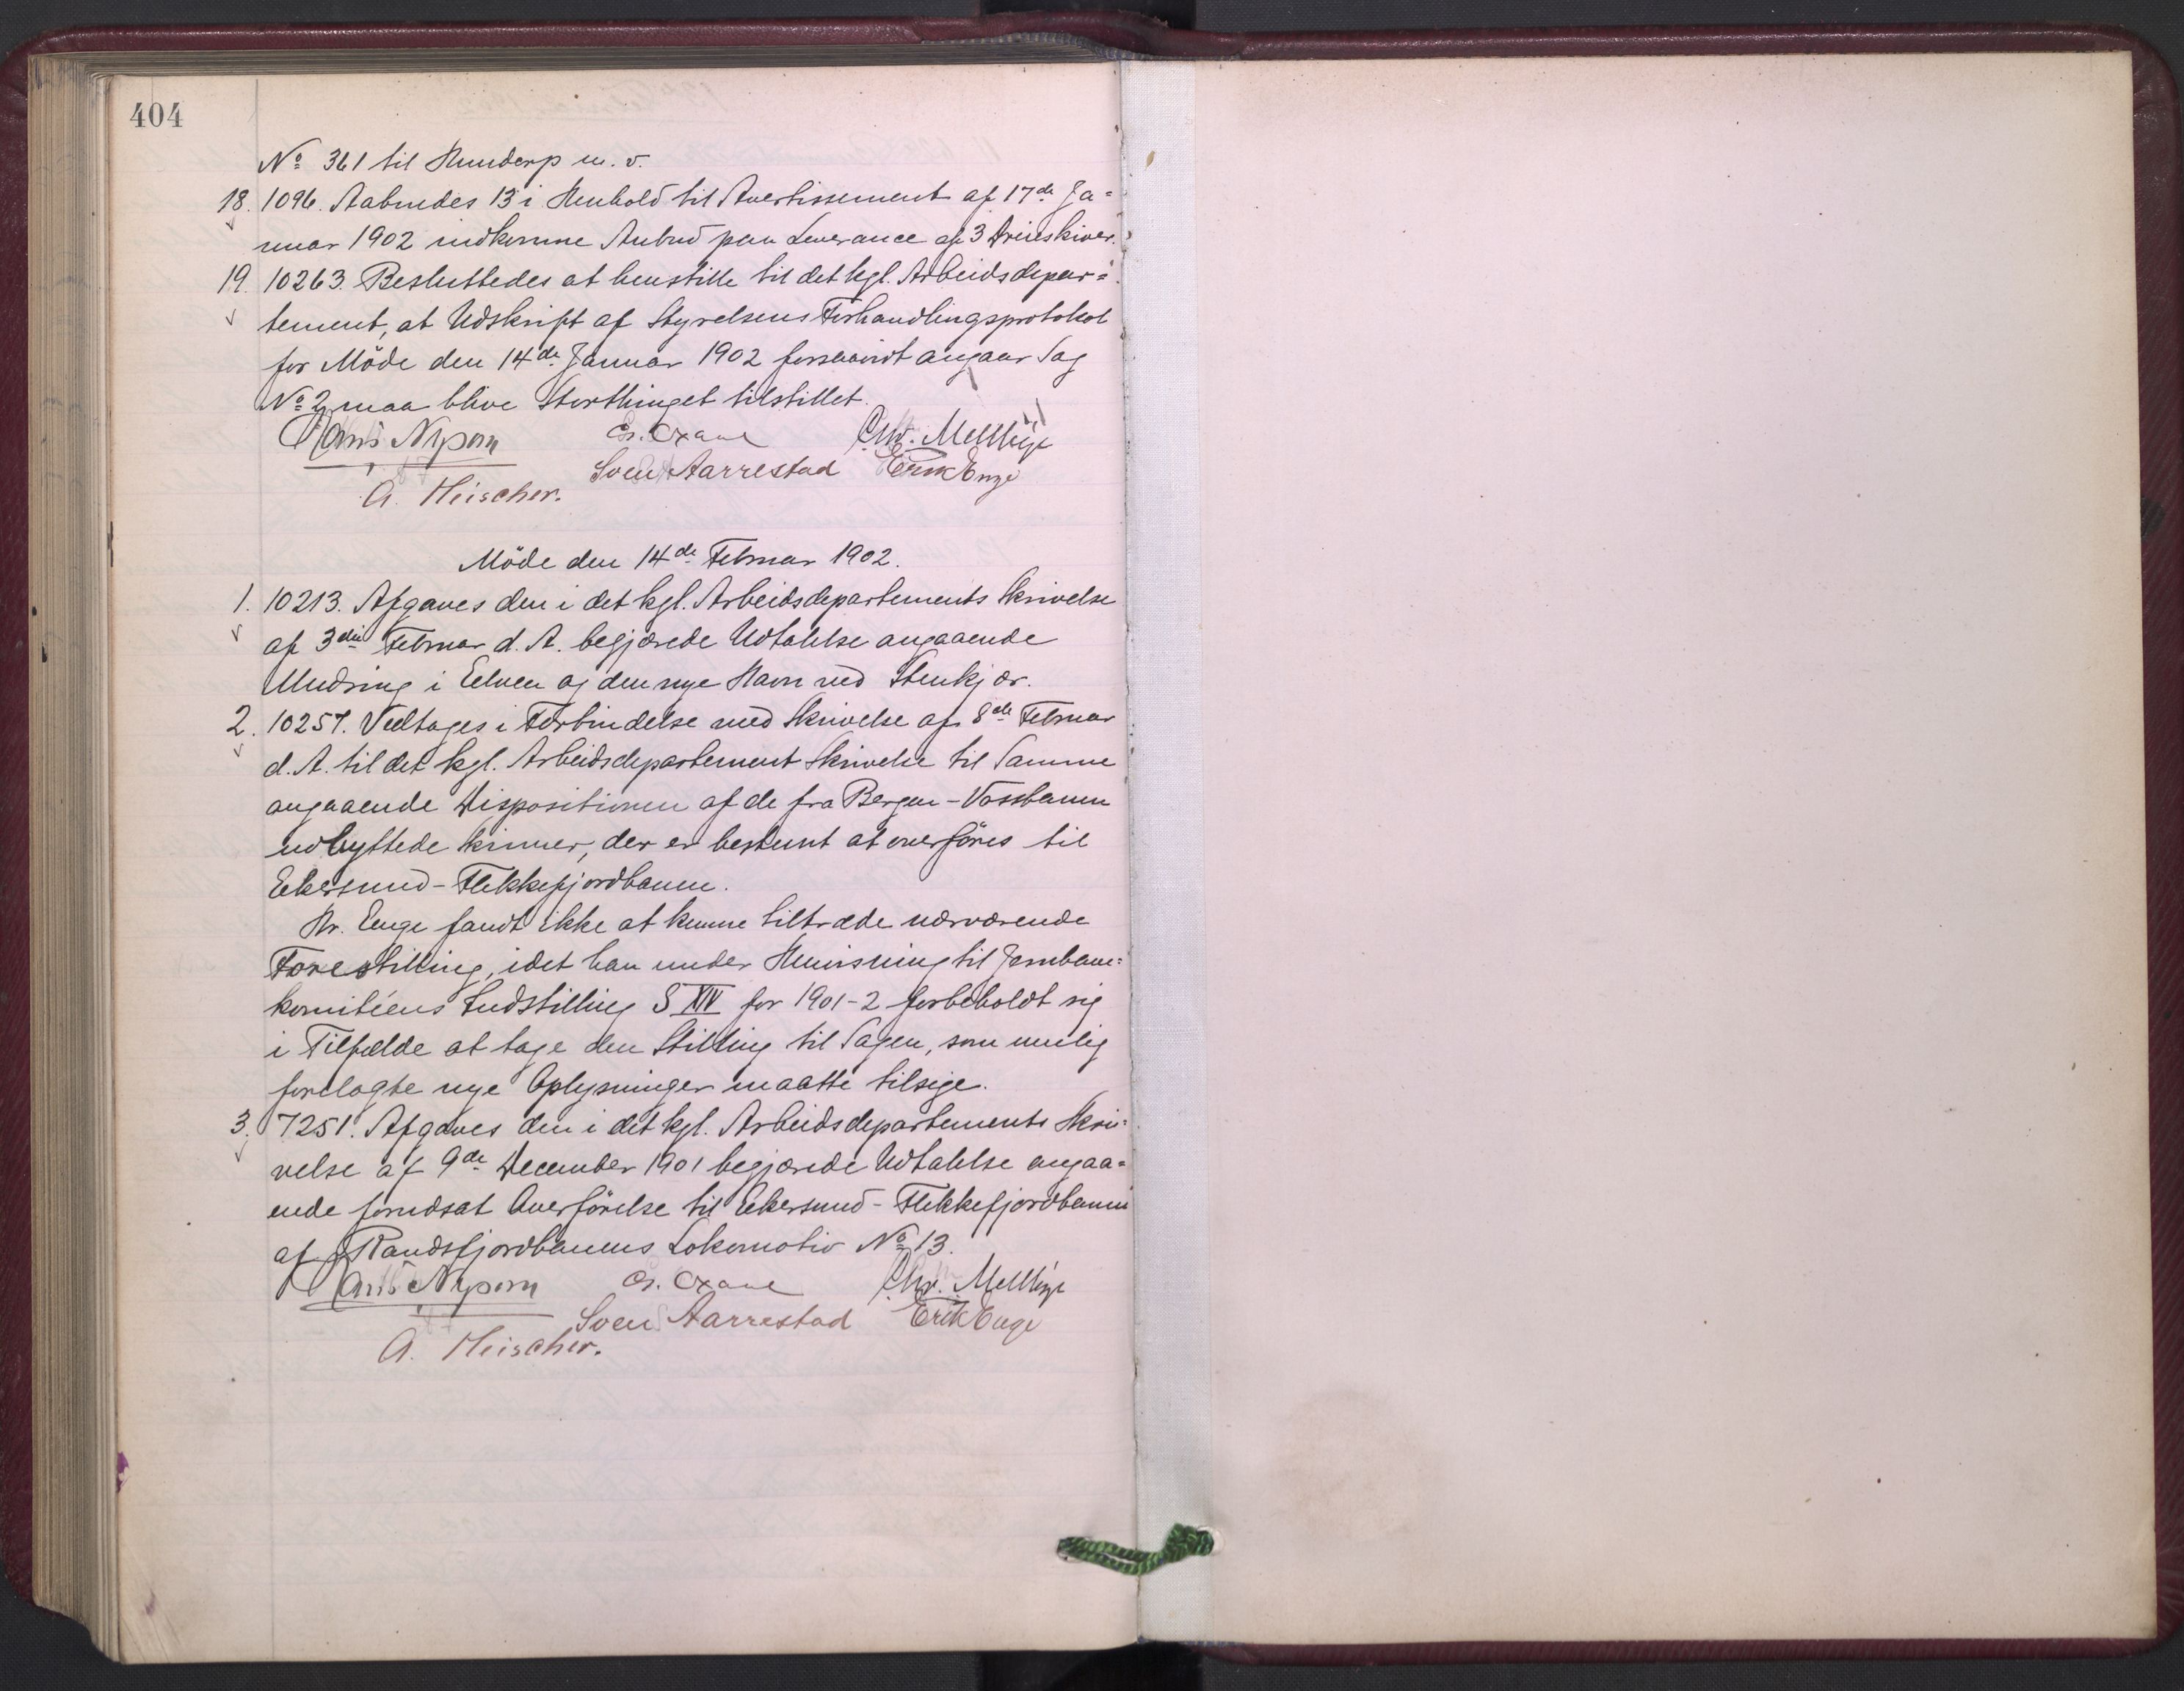 404
No 361 til Hunderp m. v.
18. 1096. Aabnedes 13 i Henhold til Avertissement af 17de Ja=
nuar 1902 indkomne Anbud paa Leverance af 3 Dreieskiver.
19. 10263. Besluttedes at henstille til det kgl. Arbeidsdepar=
tement, at Udskrift af Styrelsens Forhandlingsprotokol
for Möde den 14de Januar 1902 forsaavidt angaar Sag
No 2 maa blive Storthinget tilstillet.
Hans Nysom
Chr. Mellbye
Sven Aarrestad Erik Enge
A. Fleischer.
Möde den 14de Februar 1902.
1. 10213. Afgaves den i det kgl. Arbeidsdepartements Skrivelse
af 3die Februar d. A. begjærede Udtalelse angaaende
Mudring i Elven og den nye Havn ved Stenkjær.
2. 10257. Vedtages i Forbindelse med Skrivelse af 8de Februar
d. A. til det kgl. Arbeidsdepartement Skrivelse til Samme
angaaende Dispositionen af de fra Bergen-Vossbanen
udbyttede Skinner, der er bestemt at overföres til
Ekersund-Flekkefjordbanen.
Hr. Enge fandt ikke at kunne tiltræde nærværende
Forestilling, idet han under Henvisning til Jernbane=
komitéens Indstilling S XIV for 1901-2 forbeholdt sig
i Tilfælde at tage den Stilling til Sagen, som mulig
forelagte nye Oplysninger maatte tilsige.
3. 7251. Afgaves den i det kgl. Arbeidsdepartements Skri=
velse af 9de December 1901 begjærede Udtalelse angaa=
ende forudsat Overförelse til Ekersund-Flekkefjordbanen
af Randsfjordbanens Lokomotiv No 13.
Hans Nysom
Chr. Mellbye
Sven Aarrestad Erik Enge
A. Fleischer.